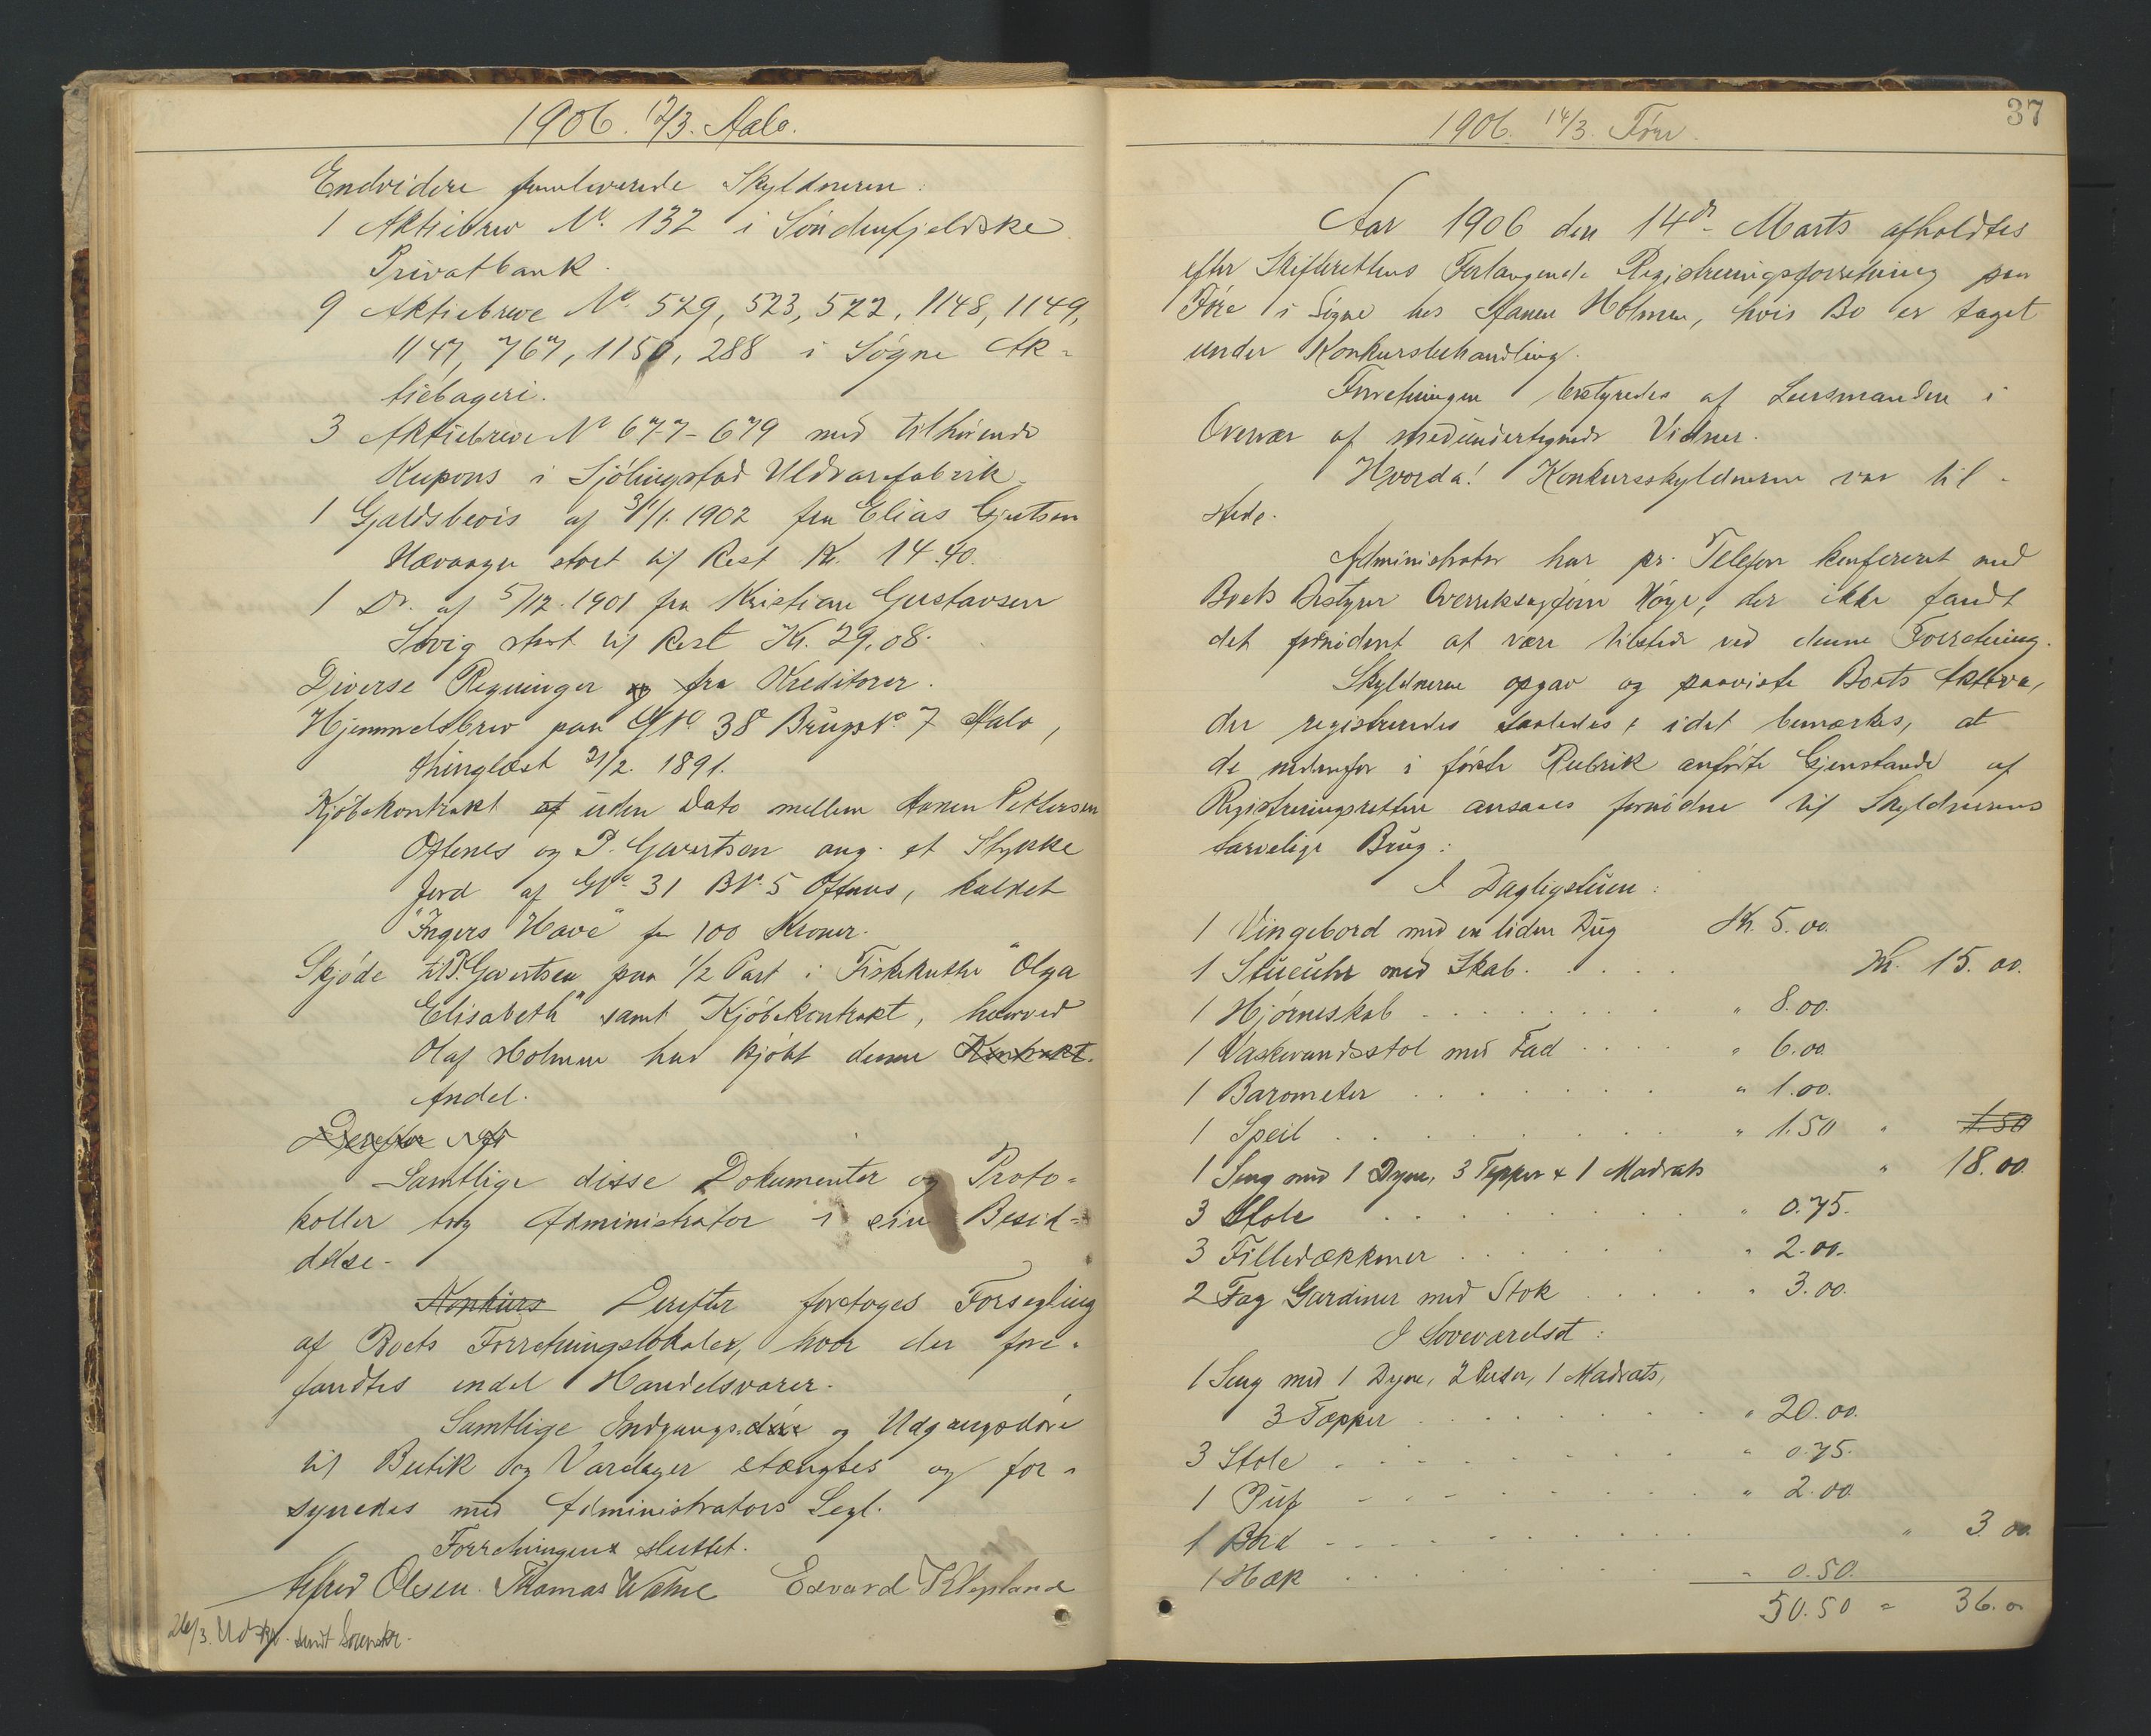 1906. 12/3. Aalo.
Endvidere fremleverede Skyldneren:
1 Aktiebrev No. 132 i Søndenfjeldske
Privatbank.
9 Aktiebreve No. 529, 523, 522, 1148, 1149,
1147, 767, 1150, 288 i Søgne Ak-
tiebageri.
3 Aktiebreve No 677-679 med tilhørende
Kupons i Sjølingstad Uldvarefabrik.
1 Gjældsbevis af 3/1. 1902 fra Elias Gjertsen
stort til Rest Kr. 14.40.
1 Do. af 5/12. 1901 fra Kristian Gustavsen
stort til Rest Kr. 29.08.
Diverse Regninger og fra Kreditorer.
Hjemmelsbrev paa GNo 38 Brugsno 7 Aalo,
thinglæst 21/2. 1891.
Kjøbekontrakt af uden Dato mellem Hanen Pettersen
Oftenes og P. Gevertsen ang. et Stykke
Jord af GNo. 31 BN. 5 Oftenes, kaldet
"Ingers Have" for 100 Kroner.
Skjøde til P. Gevertsen paa 1/2 Part i Fiskekutter "Olga
Elisabeth" samt Kjøbekontrakt, hvorved
Olaf Holmen har kjøbt denne Kontrakt.
Andel.
Derefter
Samtlige disse Dokumenter og Proto-
koller tog Administrator i sin Besid-
delse.
Konkurs Derefter foretoges Forsegling
af Boets Forretningslokaler, hvor der fore-
fandtes endel Handelsvarer.
Samtlige Indgangsdøre og Udgangsdøre
til Butik og Varelager stængtes og for-
synedes med Administrators Segl.
Forretningen sluttet.
Alfred Olsen. Thomas Watne Edvard Klepland
26/3. Udskr. sendt Sorenskr.
1906. 14/3. Føre.
37
Aar 1906 den 14de Marts afholdtes
efter Skifterettens Forlangende Registreringsforretning paa
Føre i Søgne hos Hanen Holmen, hvis Bo er taget
under Konkursbehandling.
Forretningen bestyredes af Lensmanden i
Overvær af medundertegnede Vidner.
Hvorda! Konkursskyldneren var til-
stede.
Administrator har pr. Telefon konfereret med
Boets Bestyrer Overretssagfører Høye, der ikke fandt
det fornødent at være tilstede ved denne Forretning.
Skyldneren opgav og paaviste Boets Aktiva,
der registreredes saaledes, idet bemærkes, at
de nedenfor i første Rubrik anførte Gjenstande af
Registreringsretten ansaaes fornødne til Skyldnerens
tarvelige Brug:
I Dagligstuen:
1 Vingebord med en liden Dug Kr. 5.00.
1 Stueuhr med Skab. Kr. 15.00.
1 Hjørneskab " 8.00.
1 Vaskevandsstol med Fad " 6.00
1 Barometer " 1.00.
1 Speil " 1.50 " 1.50
1 Seng med 1 Dyne, 3 Tepper & 1 Madrats " 18.00
3 Stole " 0.75.
3 Filledækkener " 2.00.
2 Fag Gardiner med Stok " 3.00.
I Soveværelset:
1 Seng med 1 Dyne, 2 Puder, 1 Madrats,
3 Tæpper " 20.00.
3 Stole " 0.75.
1 Puf " 2.00
1 Bord " 3.00
1 Hæk " 0.50.
50.50 = 36.00